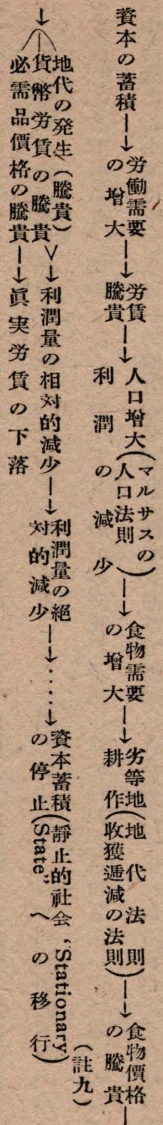 資本の蓄積―→労働需要の増大―→労賃騰貴―→人口増大(マルサスの人口法則)利潤の減少―→食物需要の増大―→劣等地耕作(地代法則)(收獲遞減の法則)―→食物價格の騰貴―
→地代の発生(騰貴)
貨幣労賃の騰貴>→利潤量の相対的減少―→利潤量の絶対的減少―→……→資本蓄積の停止(靜止的社会 "Stationary State" への移行)(註九)
必需品價格の騰貴―→眞実労賃の下落